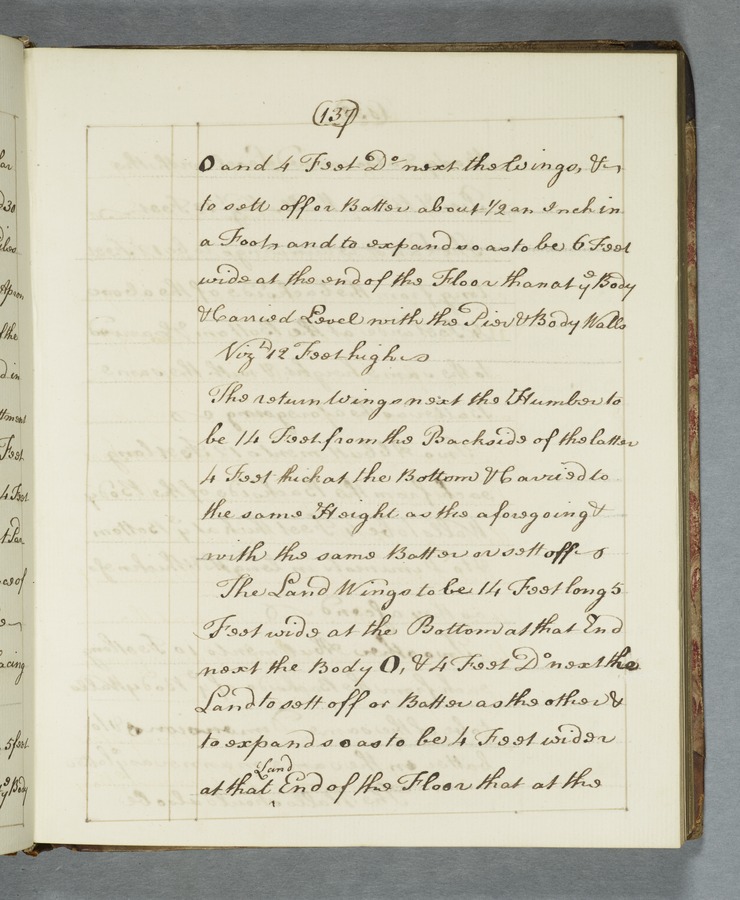 (137)
O and 4 Feet Do next the Wings, &
to sett off or Batter about 1/2 an Inch in
a Foot, and to expand so as to be 6 Feet
wide at the end of the Floor than at ye Body
& Carried Level with the Pier & Body Walls
Vizt 12 Feet high
The return Wings next the Humber to
be 14 Feet from the Backside of the latter
4 Feet thick at the Bottom & Carried to
the same Height as the aforegoing &
with the same Batter or sett off
The Land Wings to be 14 Feet long 5
Feet wide at the Bottom at that End
next the Body O, & 4 Feet Do next the
Land to sett off or Batter as the other &
to expand so as to be 4 Feet wider
Land
at that End of the Floor that at the
d in
Feet
4 Feet
ce of
acing
5 feet
ye Body